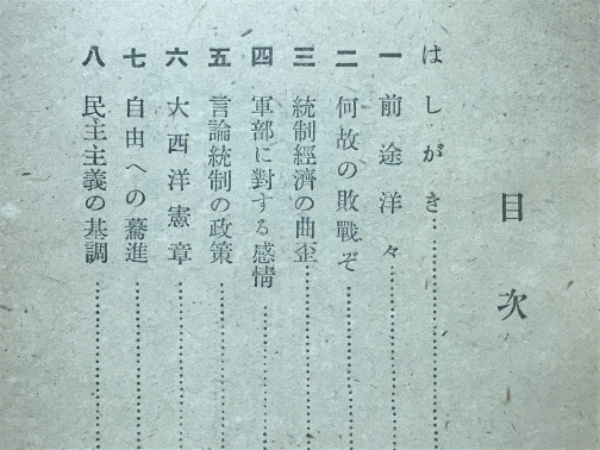 目次
はしがき
一 前途洋々
二 何故の敗戰ぞ
三 統制經濟の曲歪
四 軍部に對する感情
五 言論統制の政策
六 大西洋憲章
七 自由への驀進
八 民主主義の基調